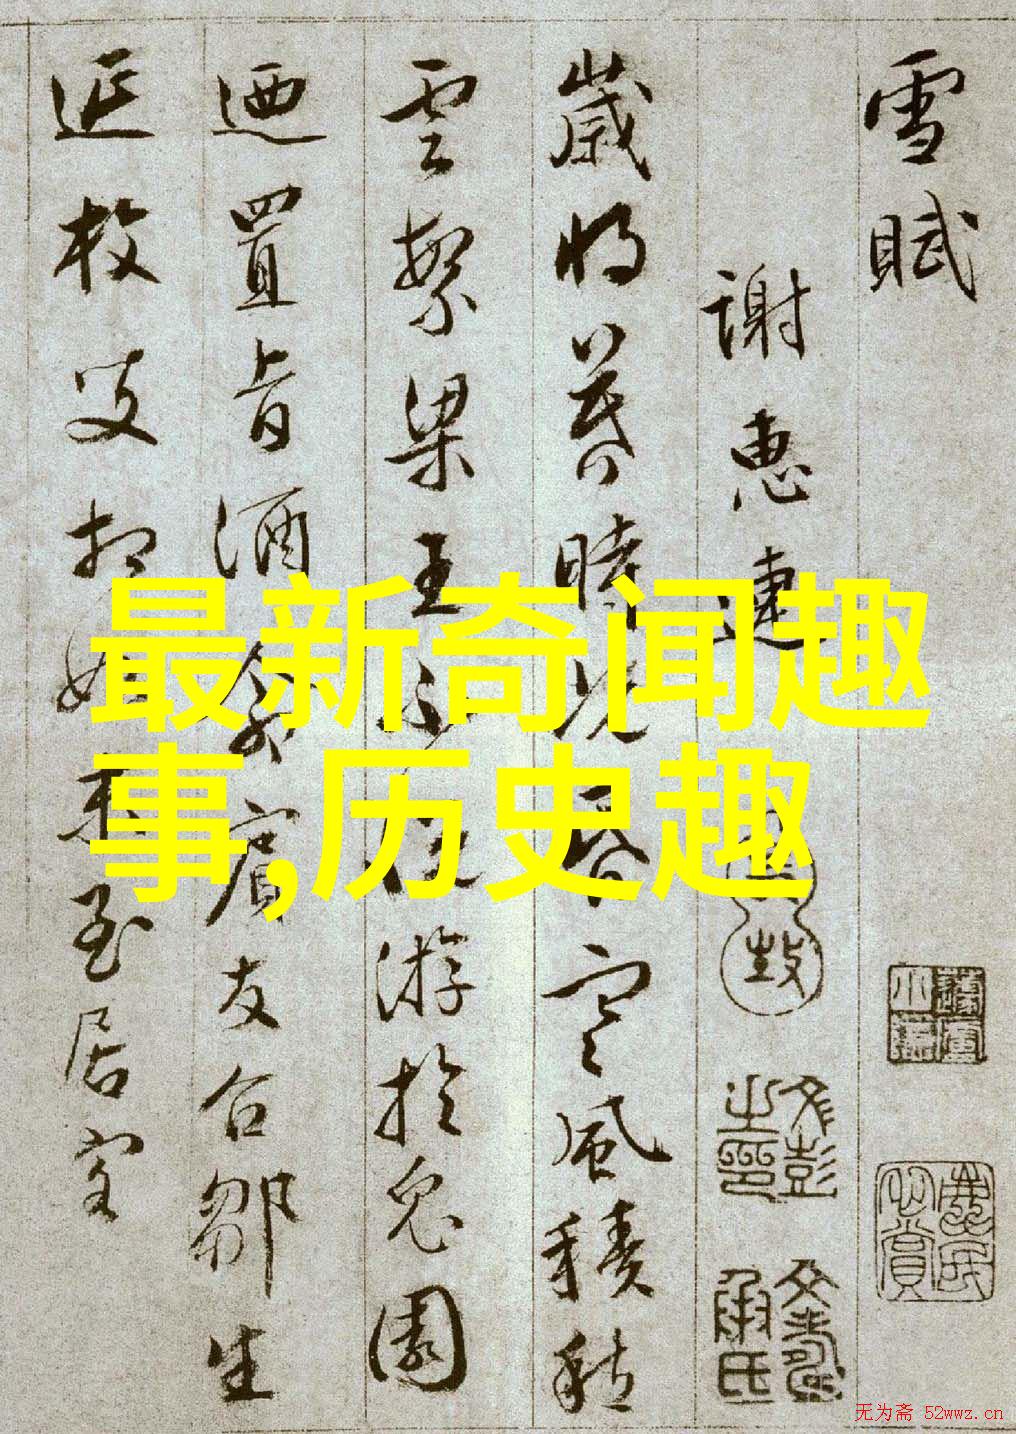 雪賦
謝惠連
歲将暮時既昏寒風積愁
雲繁梁王不悅游於兔園
迺置旨酒命賓友召鄒生
延枚叟相如末至居客
最新奇闻趣
事,历史趣
文彭之印
文壽承氏
无为斋 52wwz.cn